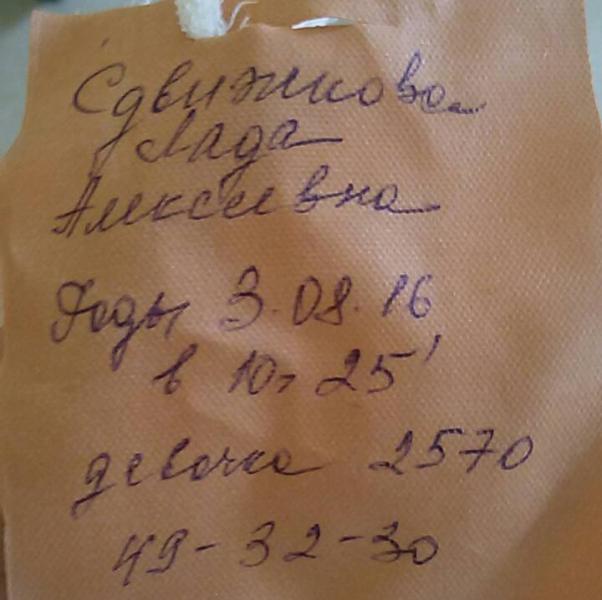 Сдвижкова
Лада
Алексеевна
Роды 3.08.16
в 10ч 25'
девочка 2570
49-32-30